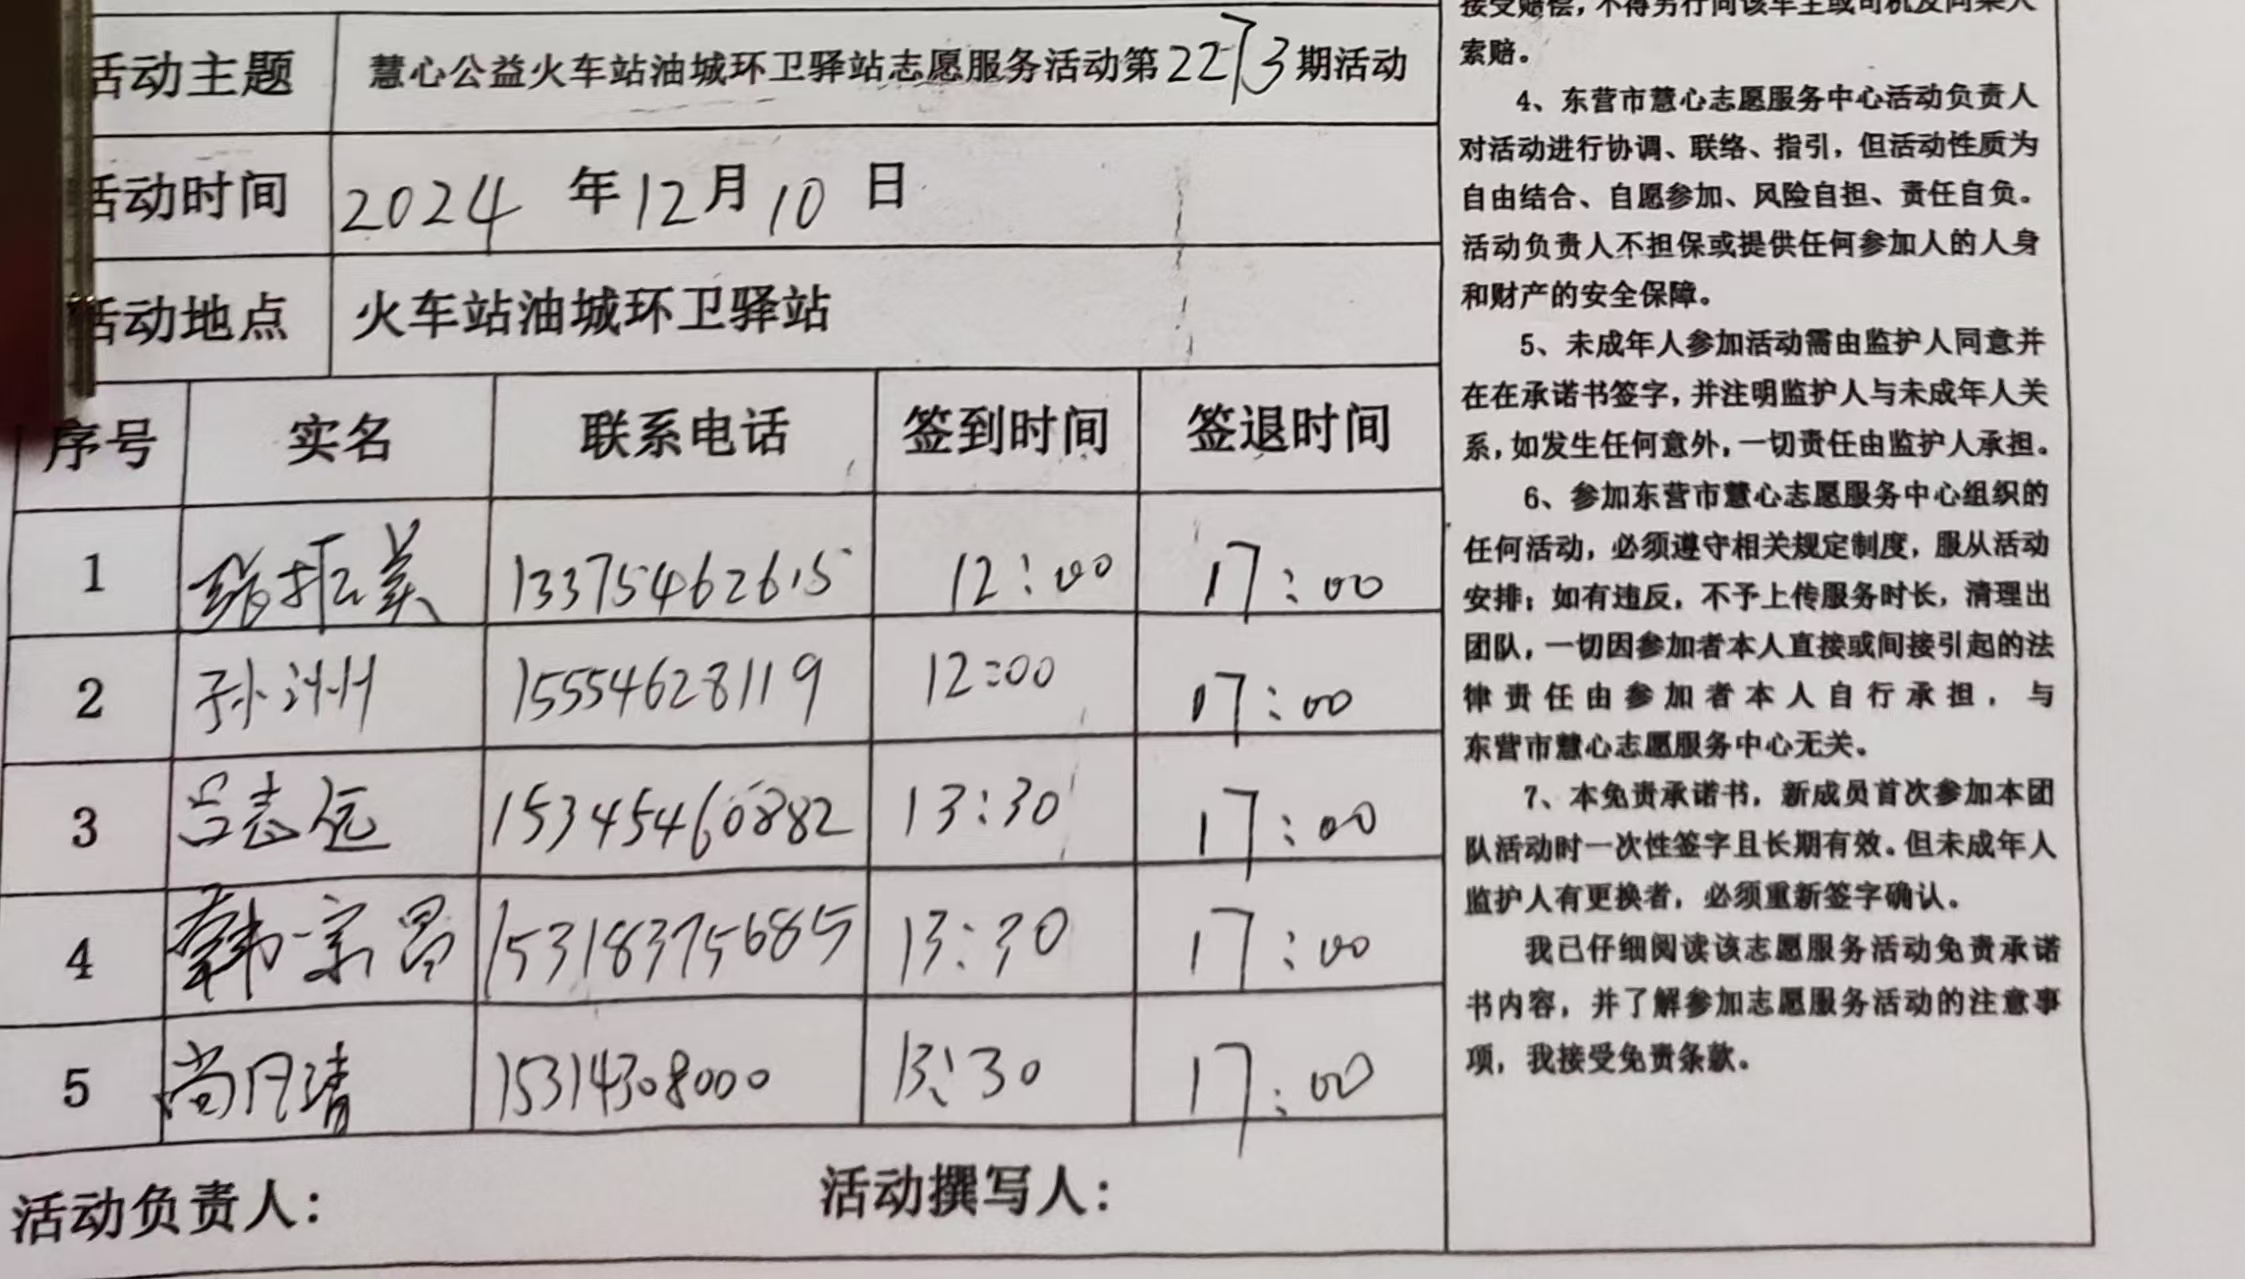 活动主题 慧心公益火车站油城环卫驿站志愿服务活动第2273期活动
活动时间 2024 年 12 月 10 日
活动地点 火车站油城环卫驿站
序号 实名 联系电话 签到时间 签退时间
1 张振美 13375462615 12:00 17:00
2 孙洲 15554628119 12:00 17:00
3 吕志远 15345460882 13:30 17:00
4 韩宗昌 15318375685 13:30 17:00
5 尚月清 15314308000 13:30 17:00
活动负责人： 活动撰写人：
接受赔偿，不得另行向该车主或司机及同乘人
索赔。
4、东营市慧心志愿服务中心活动负责人
对活动进行协调、联络、指引，但活动性质为
自由结合、自愿参加、风险自担、责任自负。
活动负责人不担保或提供任何参加人的人身
和财产的安全保障。
5、未成年人参加活动需由监护人同意并
在在承诺书签字，并注明监护人与未成年人关
系，如发生任何意外，一切责任由监护人承担。
6、参加东营市慧心志愿服务中心组织的
任何活动，必须遵守相关规定制度，服从活动
安排；如有违反，不予上传服务时长，清理出
团队，一切因参加者本人直接或间接引起的法
律责任由参加者本人自行承担，与
东营市慧心志愿服务中心无关。
7、本免责承诺书，新成员首次参加本团
队活动时一次性签字且长期有效。但未成年人
监护人有更换者，必须重新签字确认。
我已仔细阅读该志愿服务活动免责承诺
书内容，并了解参加志愿服务活动的注意事
项，我接受免责条款。